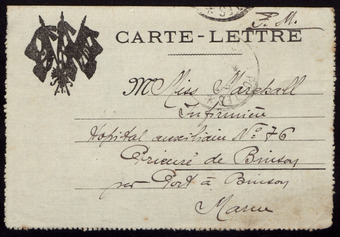 F. M.
CARTE-LETTRE
M Miss Marshall
Infirmière
Hopital auxiliaire No 76
Prieuré de Binson
par Port à Binson
Marne